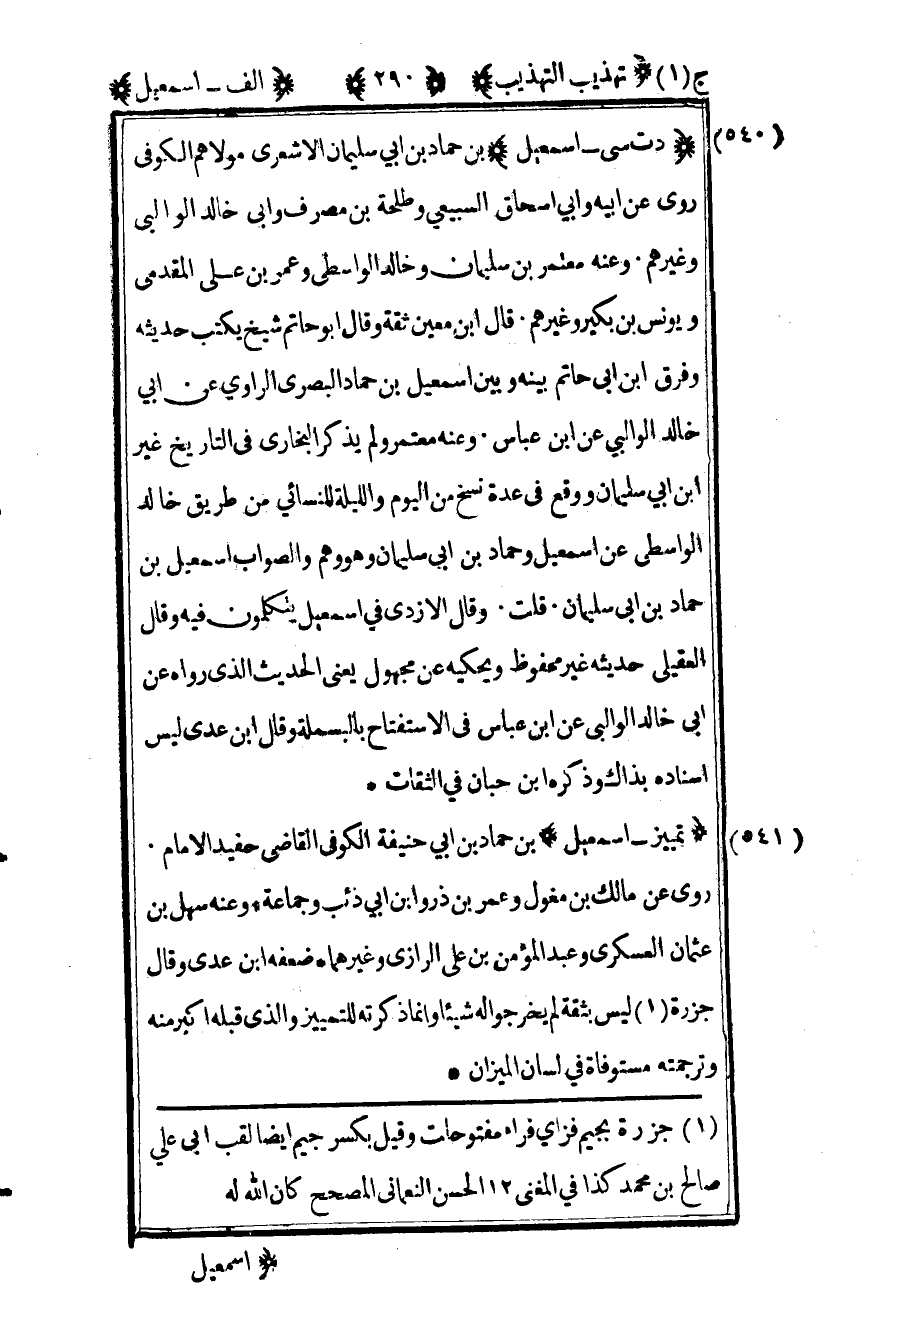 ج(١) ﴿ تهذيب التهذيب ﴾ ﴿ ٢٩٠ ﴾ ﴿ الف ـ اسمعيل ﴾
(٥٤٠) ﴿ دت سى ـ اسمعيل ﴾ بن حماد بن ابي سليمان الاشعرى مولاهم الكوفى
روى عن ابيه وابي اسحاق السبيعي وطلحة بن مصرف وابى خالد الوالبى
وغيرهم ٠ وعنه معتمر بن سليمان وخالد الواسطى وعمر بن على المقدمى
ويونس بن بكير وغيرهم ٠ قال ابن معين ثقة وقال ابو حاتم شيخ يكتب حديثه
وفرق ابن ابى حاتم بينه وبين اسمعيل بن حماد البصرى الراوي عن ابي
خالد الوالبي عن ابن عباس ٠ وعنه معتمر ولم يذكر البخارى فى التاريخ غير
ابن ابي سليمان ووقع فى عدة نسخ من اليوم والليلة للنسائي من طريق خالد
الواسطى عن اسمعيل وحماد بن ابى سليمان وهو وهم والصواب اسمعيل بن
حماد بن ابى سليمان ٠ قلت ٠ وقال الازدى في اسمعيل يتكلمون فيه وقال
العقيلى حديثه غير محفوظ ويحكيه عن مجهول يعنى الحديث الذى رواه عن
ابى خالد الوالبى عن ابن عباس فى الاستفتاح بالبسملة وقال ابن عدى ليس
اسناده بذاك وذكره ابن حبان في الثقات *
(٥٤١) ﴿ تمييز ـ اسمعيل ﴾ بن حماد بن ابي حنيفة الكوفى القاضى حفيد الامام ٠
روى عن مالك بن مغول وعمر بن ذر وابن ابي ذئب وجماعة * وعنه سهل بن
عثمان العسكرى وعبد المؤمن بن على الرازى وغيرهما * ضعفه ابن عدى وقال
جزرة (١) ليس بثقة لم يخرجوا له شيئا وانما ذكرته للتمييز والذى قبله اكبر منه
وترجمته مستوفاة في لسان الميزان *
(١) جزرة بجيم فزاي فراء مفتوحات وقيل بكسر جيم ايضا لقب ابى علي
صالح بن محمد كذا في المغنى ١٢ الحسن النعمانى المصحح كان الله له
﴿ اسمعيل